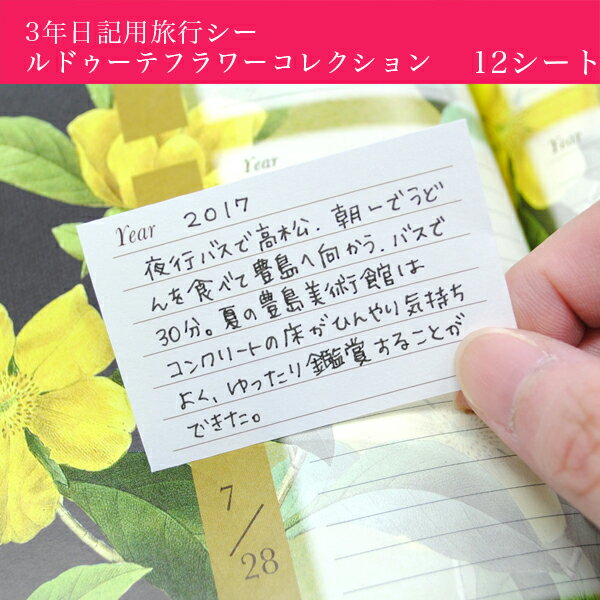 3年日記用旅行シー
ルドゥーテフラワーコレクション 12シート
Year
Year
Year 2017
夜行バスで高松．朝一でうど
んを食べて豊島へ向かう．バスで
30分。夏の豊島美術館は
コンクリートの床がひんやり気持ち
よく、ゆったり鑑賞することが
できた。
7/28